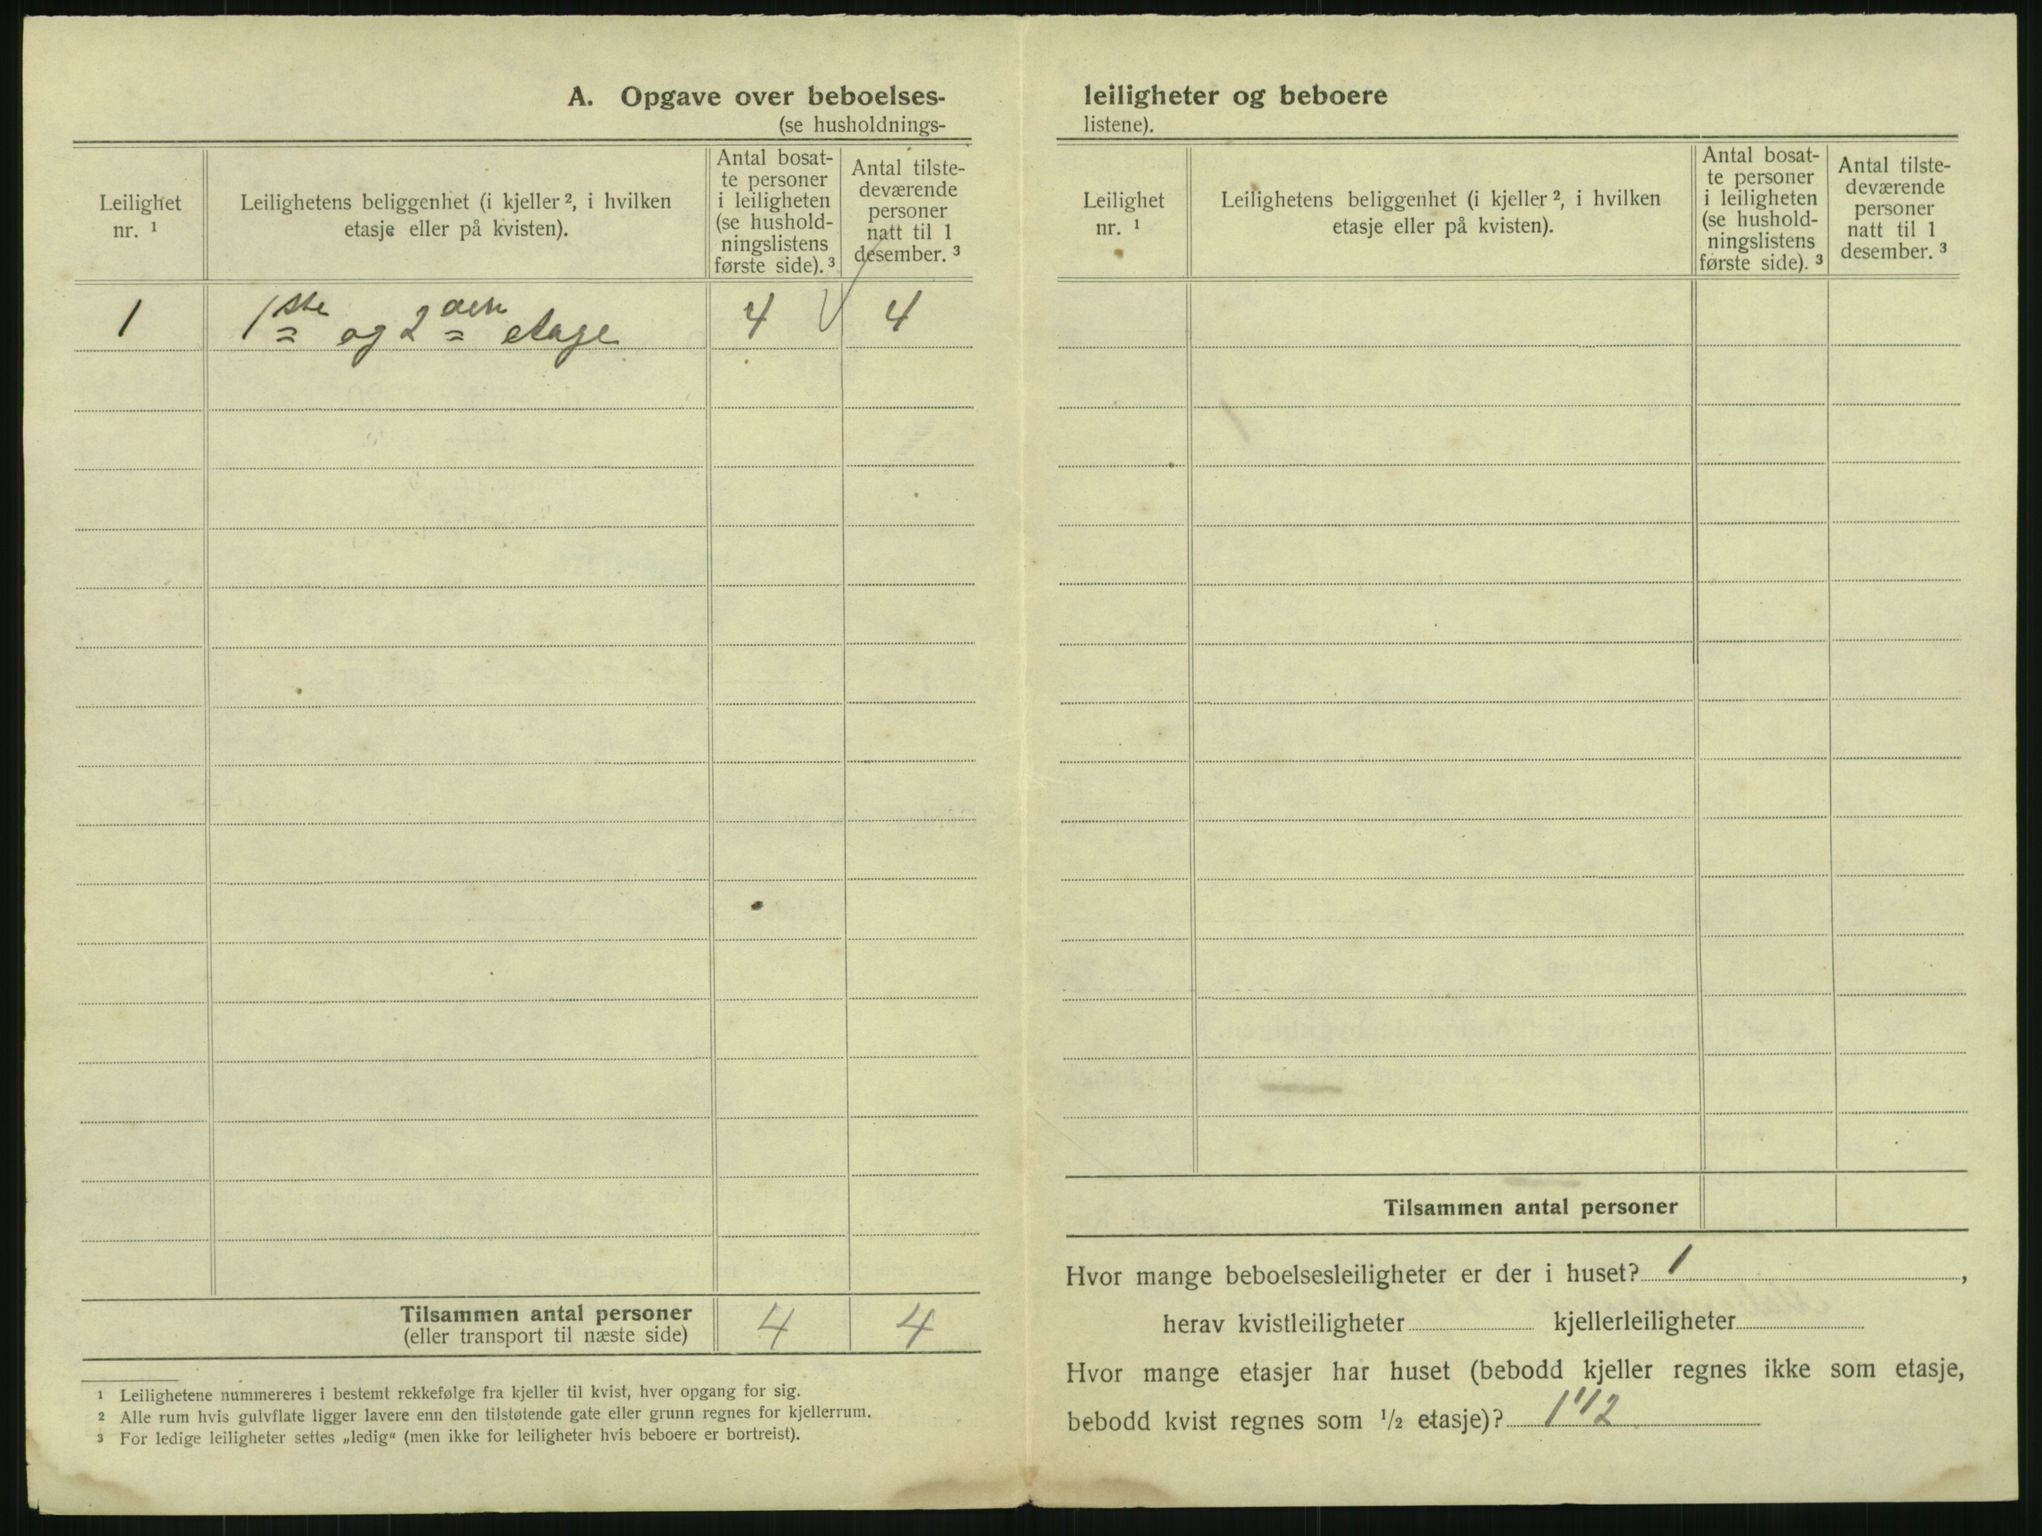 A. Opgave over beboelses-
(se husholdnings-
Leilighet
nr. ¹
Leilighetens beliggenhet (i kjeller ², i hvilken
etasje eller på kvisten).
Antal bosat-
te personer
i leiligheten
(se hushold-
ningslistens
første side). ³
Antal tilste-
deværende
personer
natt til 1
desember. ³
1 1ste og 2den etage 4 4
Tilsammen antal personer 4 4
(eller transport til næste side)
¹ Leilighetene nummereres i bestemt rekkefølge fra kjeller til kvist, hver opgang for sig.
² Alle rum hvis gulvflate ligger lavere enn den tilstøtende gate eller grunn regnes for kjellerrum.
³ For ledige leiligheter settes „ledig“ (men ikke for leiligheter hvis beboere er bortreist).
leiligheter og beboere
listene).
Leilighet
nr. ¹
Leilighetens beliggenhet (i kjeller ², i hvilken
etasje eller på kvisten).
Antal bosat-
te personer
i leiligheten
(se hushold-
ningslistens
første side). ³
Antal tilste-
deværende
personer
natt til 1
desember. ³
Tilsammen antal personer
Hvor mange beboelsesleiligheter er der i huset? 1 ,
herav kvistleiligheter kjellerleiligheter
Hvor mange etasjer har huset (bebodd kjeller regnes ikke som etasje,
bebodd kvist regnes som ½ etasje)? 1 1/2